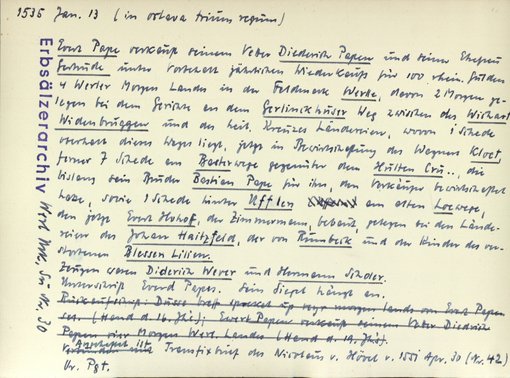 1535 Jan. 13 (in octava trium regum)
Evert Pape verkauft seinem Vetter Diederich Papen und seiner Ehefrau
Gertrude unter Vorbehalt jährlichen Wiederkaufs für 100 rhein. Gulden
4 Werler Morgen Landes in der Feldmark Werle, davon 2 Morgen ge-
legen bei dem Gerichte an dem Gerlinckhuser Weg zwischen des Wichart
Widenbruggen und des heil. Kreuzes Ländereien, wovon 1 Schede
oberhalb dieses Weges liegt, jetzt in Bewirtschaftung des Wegners Kloet,
ferner 7 Schede am Basterwege gegenüber dem Hilsten Cru.., die
bislang sein Bruder Bastian Pape für ihn, den Verkäufer bewirtschaftet
habe, sowie 1 Schede hinter Ufflen am alten Loewege,
den jetzt Evert Hohof, der Zimmermann, bebaut, gelegen bei den Lände-
reien des Johan Haitzfeld, der von Rumbeck und der Kinder des ver-
storbenen Blessen Lilien.
Zeugen waren Diderich Wever und Hermann Schder.
Unterschrift Everd Papes. Sein Siegel hängt an.
Rückaufschrift: Dusse breff sprecket up veyr morgen landes van Evert Papen
(Hand d. 16. Jhs); Evert Papen verkauf seinem Veter Diederich
Papen vier Morgen Werl. Landes (Hand d. 17. Jhs).
Angeheftet ist Transfixbrief des Nicolaus v. Hövel v. 1551 Apr. 30 (Nr. 42)
Or. Pgt.
Erbsälzerarchiv Werl Nr. 30